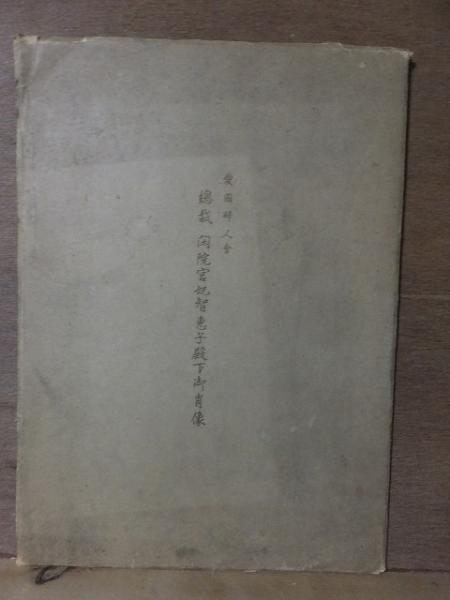 愛國婦人會
總裁 閑院宮妃智惠子殿下御肖像